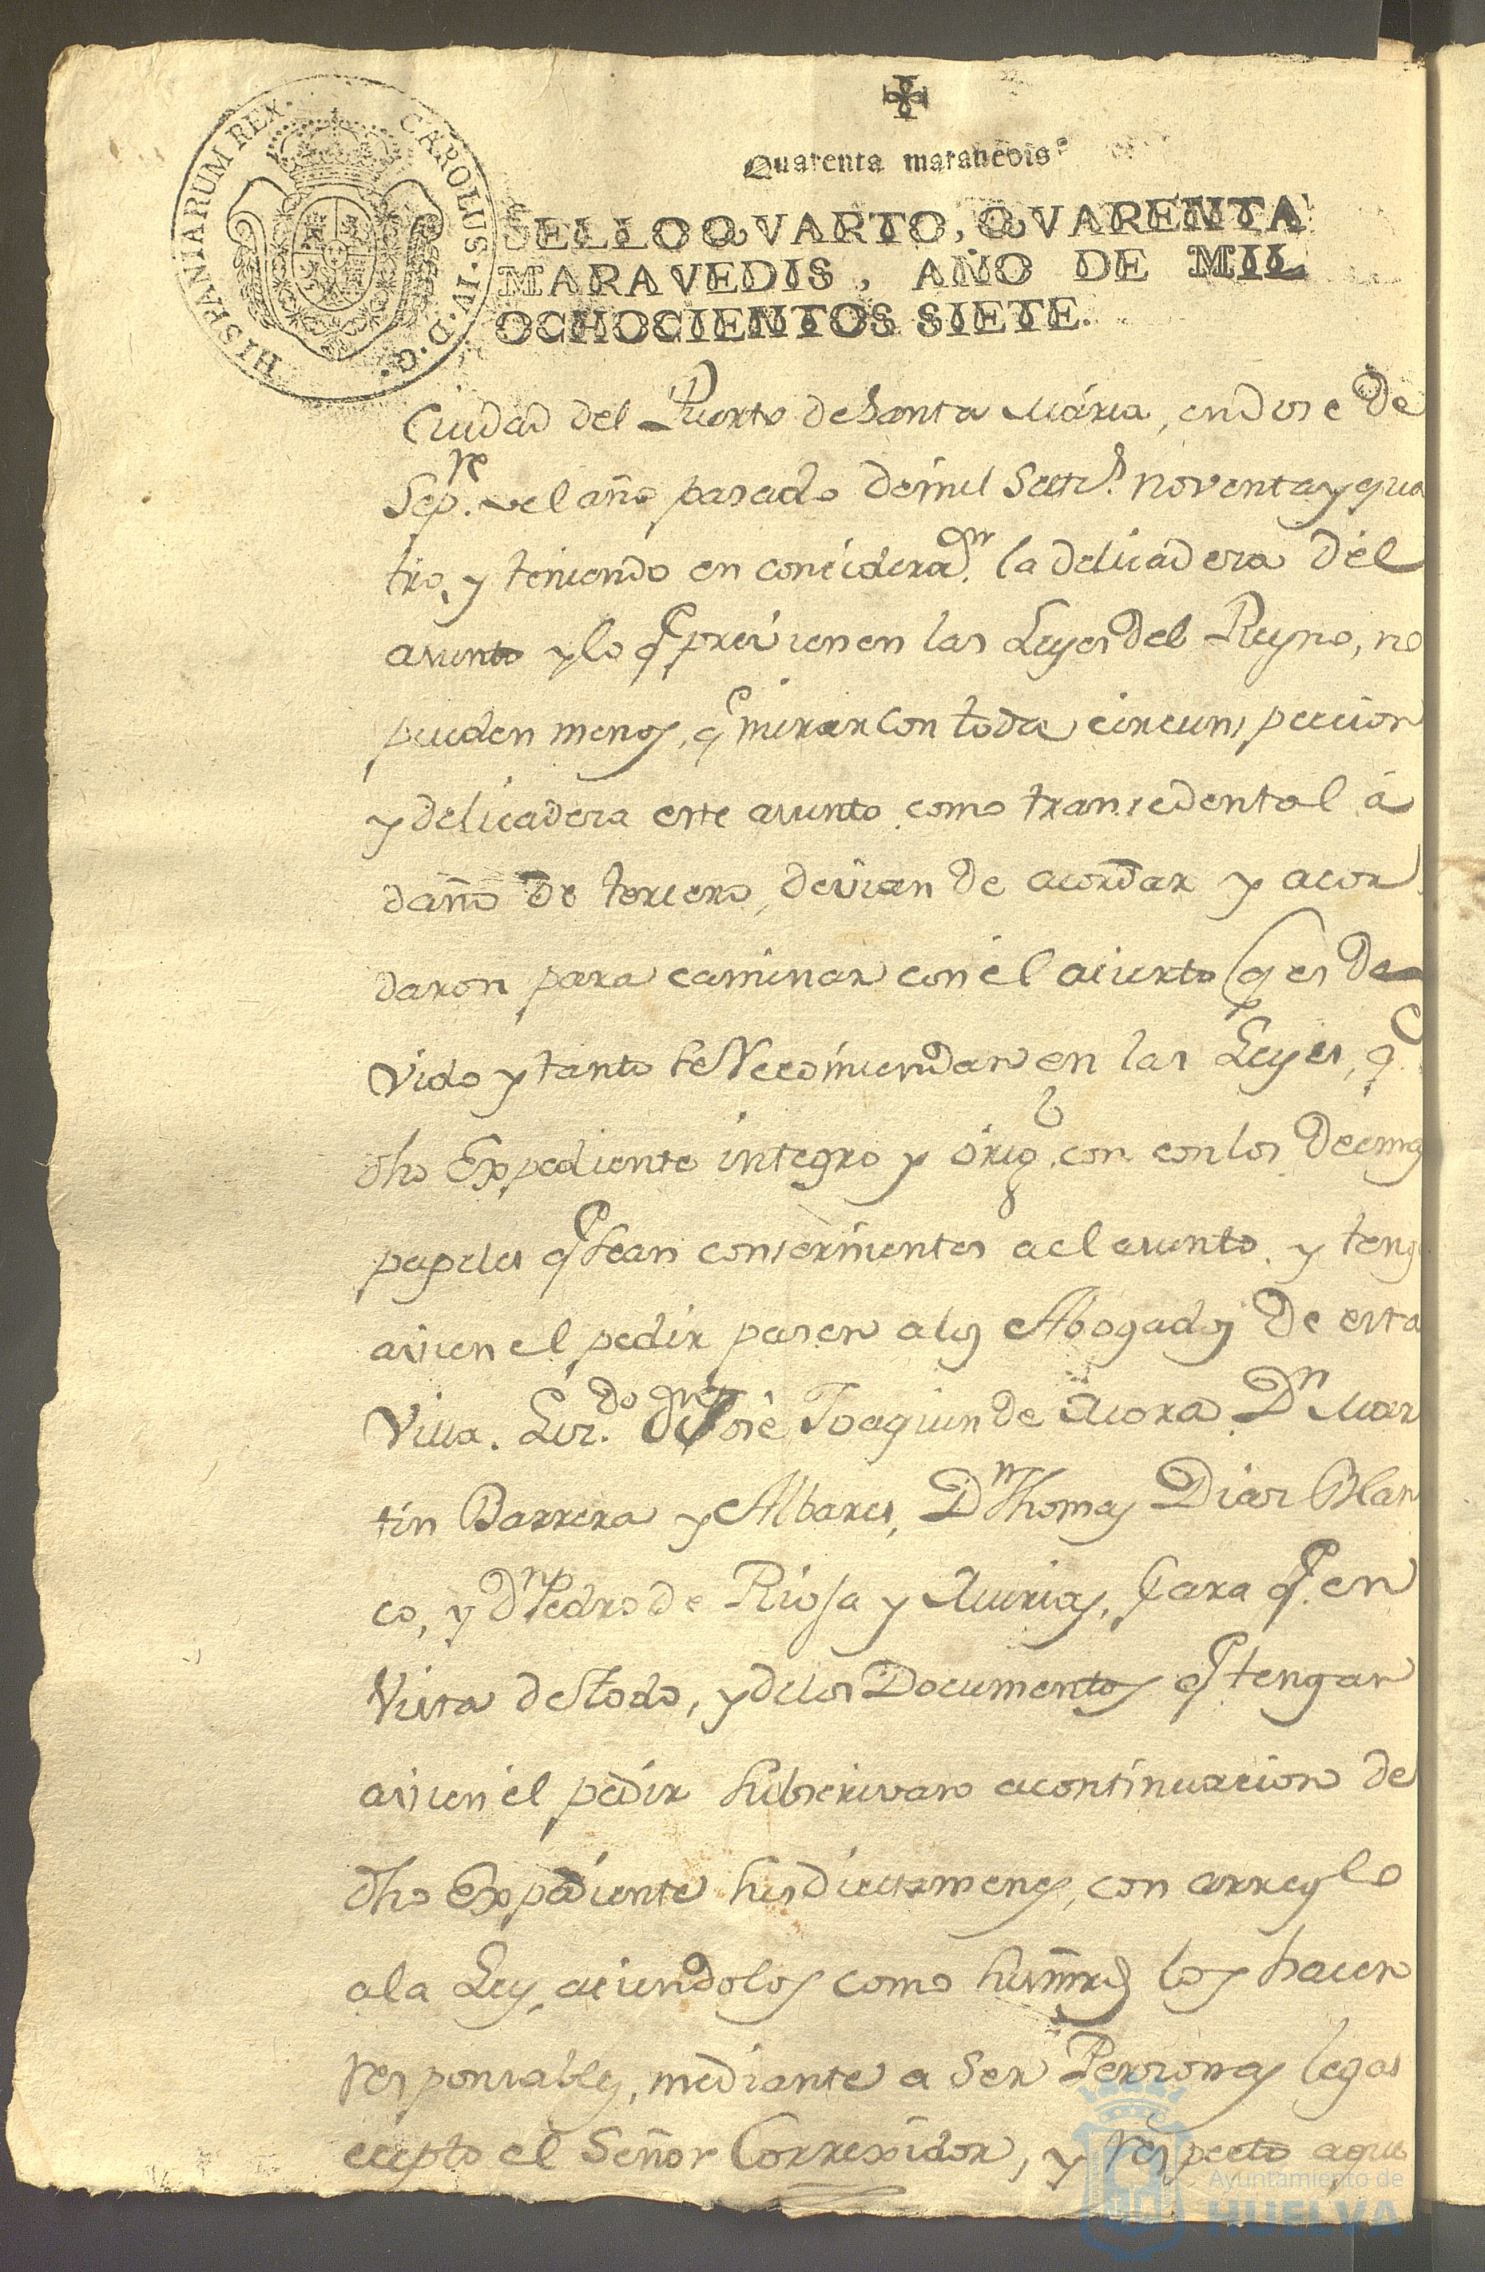 HISPANIARUM REX. CAROLUS. IV. D. G.
Quarenta maravedis
SELLO QVARTO, QVARENTA
MARAVEDIS, AÑO DE MIL
OCHOCIENTOS SIETE.
Ciudad del Puerto de Santa Maria, en dose de
Sepre. del año pasado de mil Setts. noventa y qua
tro, y teniendo en concideraon. la delicadesa del
asunto y lo qe previenen las Leyes del Reyno, no
pueden menos, qe mirar con toda circunspeccion
y delicadesa este asunto como transedental á
daño de tercero, devian de acordar y acor
daron para caminar con el acierto (qe es de
vido y tanto se Recomiendan en las Leyes, qe.
dho Expediente integro y orig.l con con los demas
papeles qe sean consernientes a el asunto y teng
avien el pedir pasen a los Abogados de esta
Villa. Liz.do Dn José Joaquin de Mora Dn Mar
tin Barrera y Albares, Dn Thomas Dias Blan
co, y Dn Pedro de Rioja y Murias, para qe. en
Vista de todo, y de los Documentos qe tengan
avien el pedir subscrivan acontinuacion de
dho Expediente sus dictamenes, con arreglo
a la Ley, aciendolos como sus mrds los hacen
responsables, mediante a Ser Personas legas
ecepto el Señor Correxidor, y respecto aque
Ayuntamiento de
HUELVA